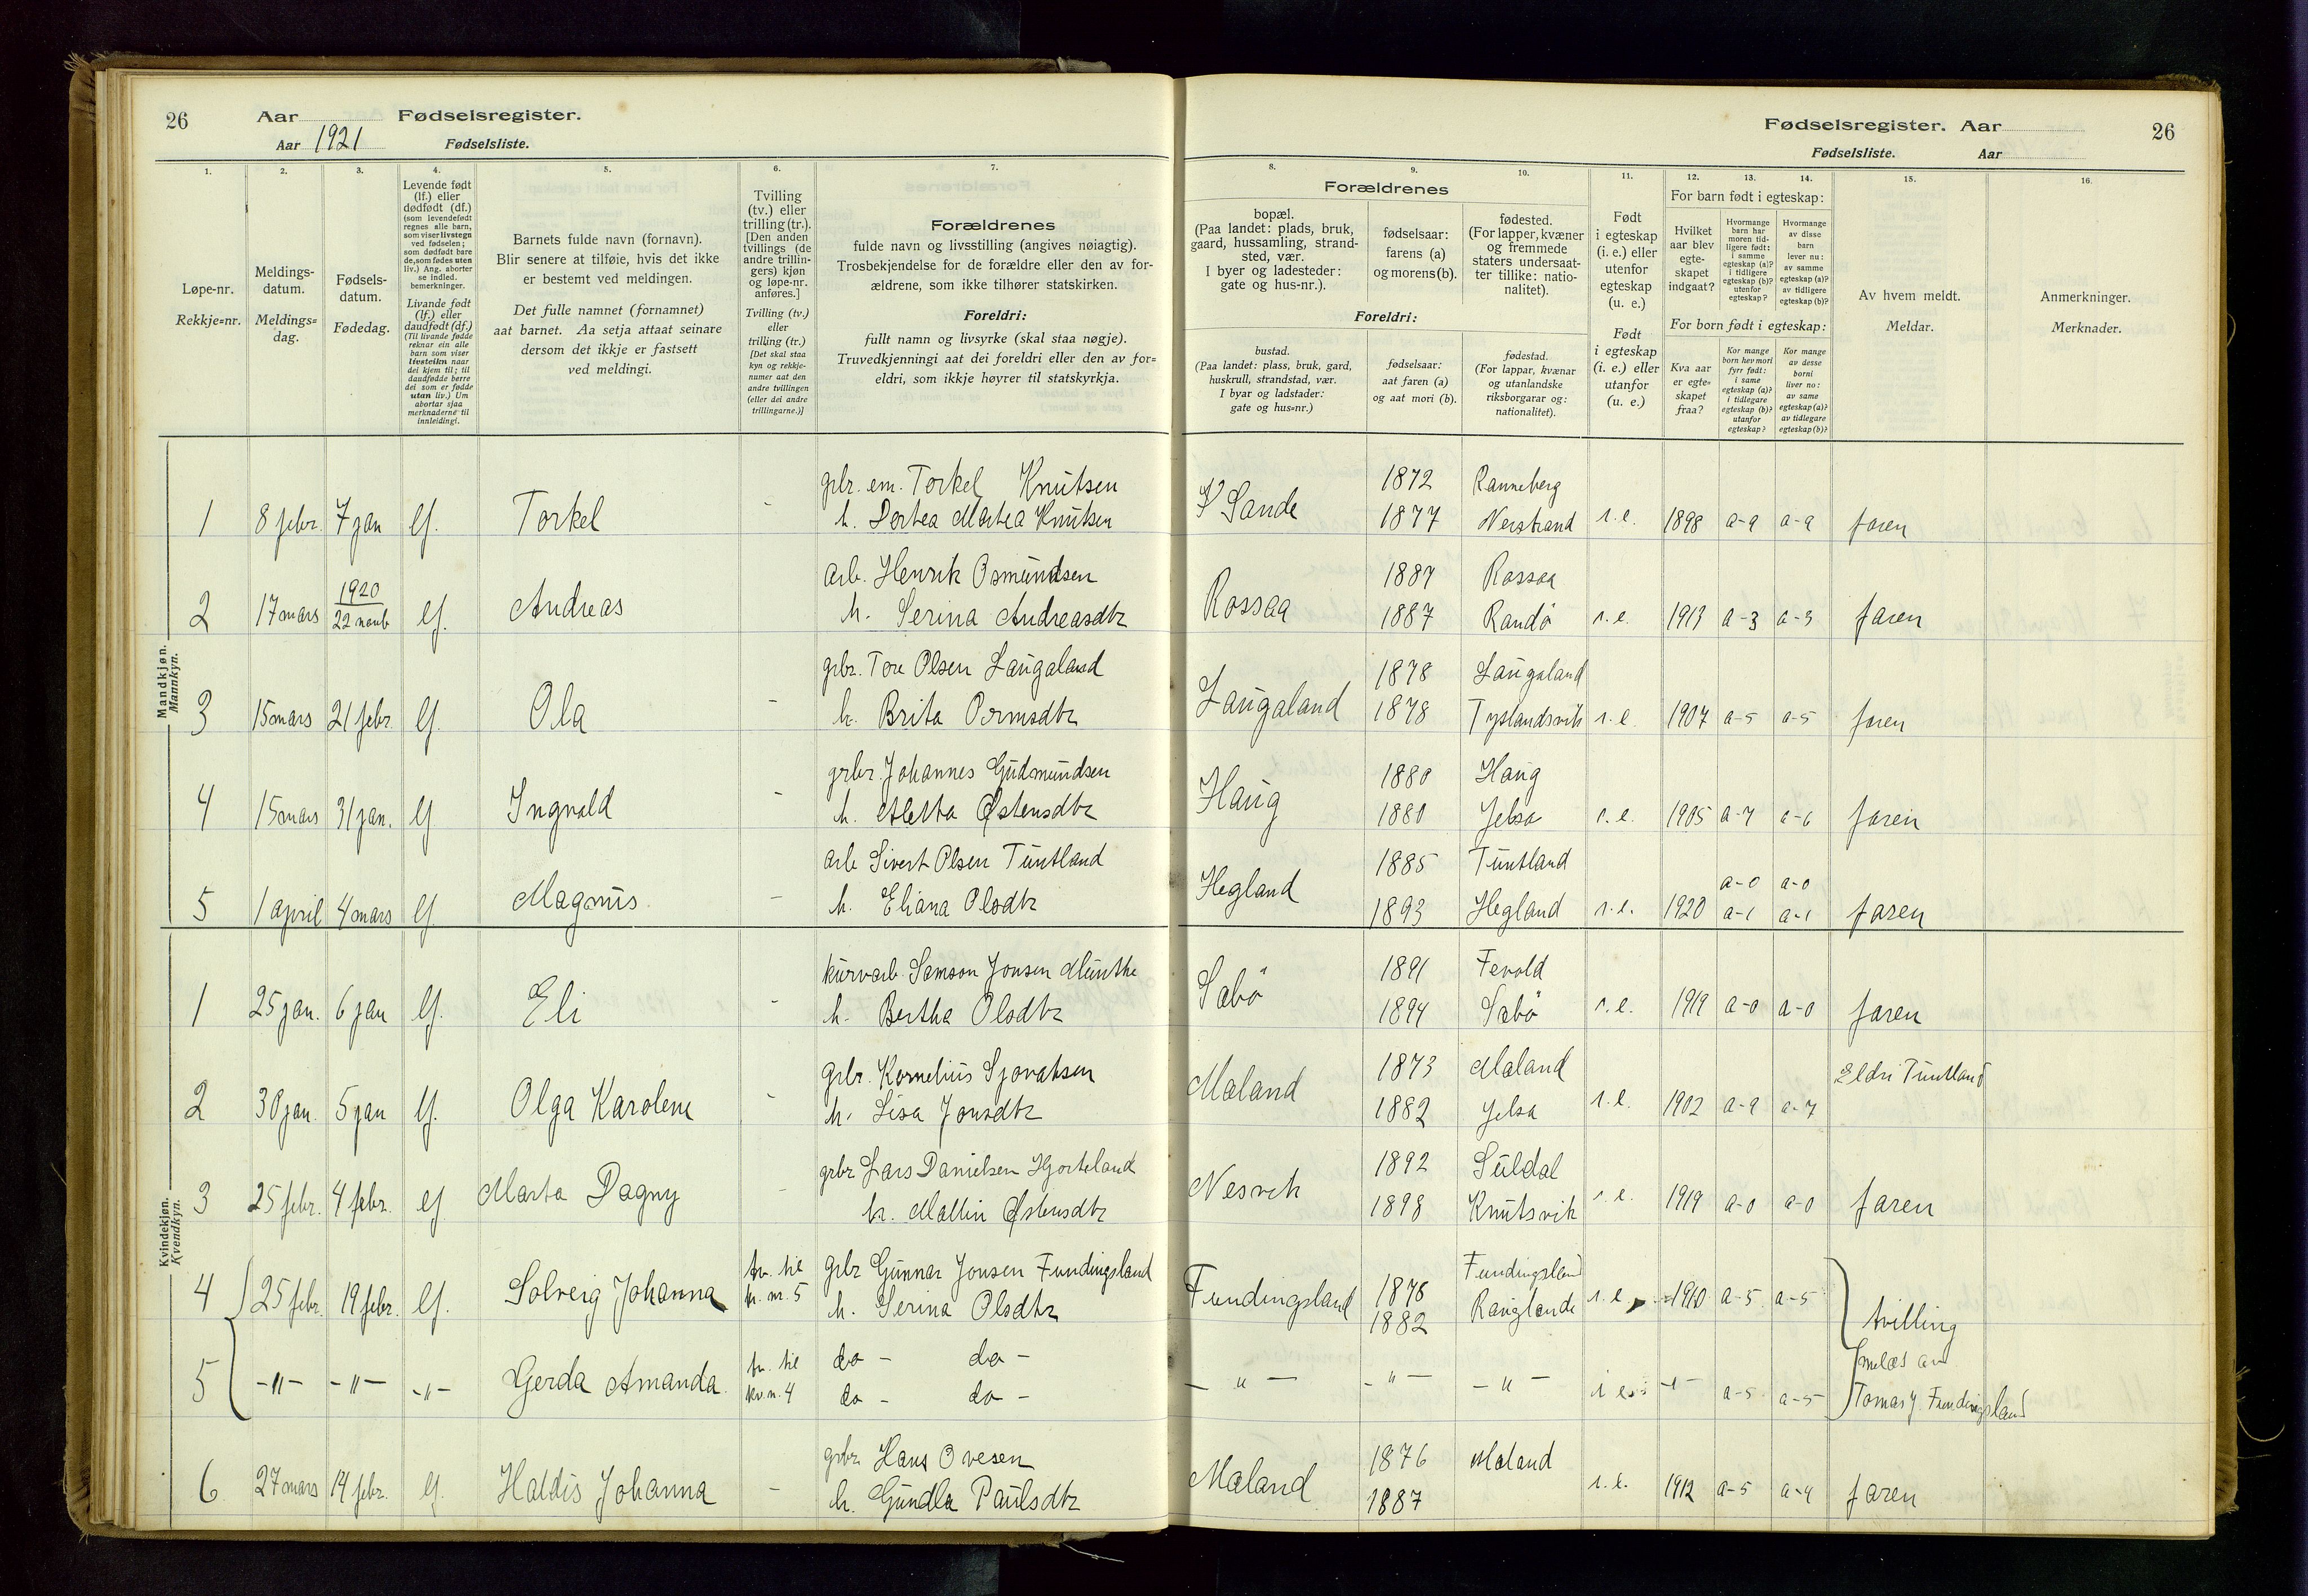 26 Aar Fødselsregister.
Aar 1921 Fødselsliste.
Fødselsregister. Aar 26
Fødselsliste. Aar
1. 2. 3. 4. 5. 6. 7.
Løpe-nr.
Rekkje=nr.
Meldings-
datum.
Meldings=
dag.
Fødsels-
datum.
Fødedag.
Levende født
(lf.) eller
dødfødt (df.)
(som levendefødt
regnes alle barn,
som viser livstegn
ved fødselen;
som dødfødt bare
de, som fødes uten
liv.) Ang. aborter
se indled.
bemerkninger.
Livande født
(lf.) eller
daudfødt (df.)
(Til livande fødde
reknar ein alle
barn som viser
livsteikn naar
dei kjem til; til
daudfødde berre
dei som er fødde
utan liv.) Um
abortar sjaa
merknaderne til
innleidingi.
Barnets fulde navn (fornavn).
Blir senere at tilføie, hvis det ikke
er bestemt ved meldingen.
Det fulle namnet (fornamnet)
aat barnet. Aa setja attaat seinare
dersom det ikkje er fastsett
ved meldingi.
Tvilling
(tv.) eller
trilling (tr.).
[Den anden
tvillings (de
andre trillin-
gers) kjøn
og løpe-nr.
anføres.]
Tvilling (tv.)
eller
trilling (tr.)
[Det skal staa
kyn og rekkje-
numer aat den
andre tvillingen
(eller dei andre
trillingarne.)]
Forældrenes
fulde navn og livsstilling (angives nøiagtig).
Trosbekjendelse for de forældre eller den av for-
ældrene, som ikke tilhører statskirken.
Foreldri:
fullt namn og livsyrke (skal staa nøgje).
Truvedkjenningi aat dei foreldri eller den av for=
eldri, som ikkje høyrer til statskyrkja.
8. 9. 10. 11. 12. 13. 14. 15. 16.
Forældrenes
bopæl.
(Paa landet: plads, bruk,
gaard, hussamling, strand-
sted, vær.
I byer og ladesteder:
gate og hus-nr.).
fødselsaar:
farens (a)
og morens (b).
fødested.
(For lapper, kvæner
og fremmede
staters undersaat-
ter tillike: natio-
nalitet).
Foreldri:
bustad.
(Paa landet: plass, bruk, gard,
huskrull, strandstad, vær.
I byar og ladstader:
gate og hus=nr.)
fødselsaar:
aat faren (a)
og aat mori (b).
fødestad.
(For lappar, kvænar
og utanlandske
riksborgarar og:
nationalitet).
Født
i egteskap
(i. e.) eller
utenfor
egteskap
(u. e.)
Født
i egteskap
(i. e.) eller
utanfor
(u. e.)
For barn født i egteskap:
Hvilket
aar blev
egte-
skapet
indgaat?
Hvormange
barn har
moren tid-
ligere født:
i samme
egteskap (a)?
i tidligere
egteskap (b)?
utenfor
egteskap?
Hvormange
av disse
barn
lever nu:
av samme
egteskap (a)?
av tidligere
egteskap (b)?
For born født i egteskap:
Kva aar
er egte=
skapet
fraa?
Kor mange
born hev mori
fyrr født:
i same
egteskap (a)?
i tidlegare
egteskap (b)?
utanfor
egteskap?
Kor mange
av desse
borni
liver no:
av same
egteskap (a)?
av tidlegare
egteskap (b)?
Av hvem meldt.
Meldar.
Anmerkninger.
Merknader.
Mandkjøn.
Mannkyn.
gbr. em. Torkel Knutsen 1872 Ranneberg
1 8 febr. 7 jan lf. Torkel - h. Dortea Martea Knutsen V Sande 1877 Nerstrand i.e. 1898 a-9 a-9 faren
1920 arb. Henrik Osmundsen 1887 Rossaa
2 17 mars 22 novb lf. Andreas h. Serina Andreasdtr Rossaa 1887 Randö i.e. 1913 a-3 a-3 faren
gbr. Tore Olsen Laugaland 1878 Laugaland
3 15 mars 21 febr. lf. Ola - h. Brita Ormsdtr Laugaland 1878 Tyslandsvik i.e. 1907 a-5 a-5 faren
grbr. Johannes Gudmundsen 1880 Haug
4 15 mars 31 jan. lf Ingvald - h. Aletta Østensdtr Haug 1880 Jelsa i.e. 1905 a-7 a-6 faren
arb Sivert Olsen Tuntland 1885 Tuntland a-0 a-0
5 1 april 4 mars lf Magnus - h. Eliana Olsdtr Hegland 1893 Hegland i.e. 1920 a-1 a-1 faren
Kvindekjøn.
Kvendkyn.
kurvarb. Samson Jonsen Munthe 1891 Fevold
1 25 jan. 6 jan lf. Eli - h. Bertha Olsdtr Sabö 1894 Sabö i.e. 1919 a-0 a-0 faren
grbr. Kornelius Sjovatsen 1873 Maland Eldri Tuntland
2 30 jan. 5 jan lf. Olga Karolene - h. Lisa Jonsdtr Maland 1882 Jelsa i.e. 1902 a-9 a-7
grbr Lars Danielsen Hjorteland 1892 Suldal
3 25 febr. 4 febr. lf Marta Dagny - h. Mallin Østensdtr Nesvik 1898 Knutsvik i.e. 1919 a-0 a-0 faren
tv. til grbr Gunnar Jonsen Fundingsland 1878 Fundingsland
4 25 febr. 19 febr. lf. Solveig Johanna k. nr. 5 h. Serina Olsdtr Fundingsland 1882 Rauglande i.e. 1910 a-5 a-5 tvilling
tv. til do - do - meldt av
5 -"- -"- -"- Gerda Amanda kv. n. 4 do - do - -"- -"- -"- i e -"- a-5 a-5 Tomas J. Fundingsland
grbr Hans Ovesen 1876 Maland
6 27 mars 14 febr. lf. Haldis Johanna - h. Gundla Paulsdtr Maland 1887 i.e. 1912 a-5 a-4 faren